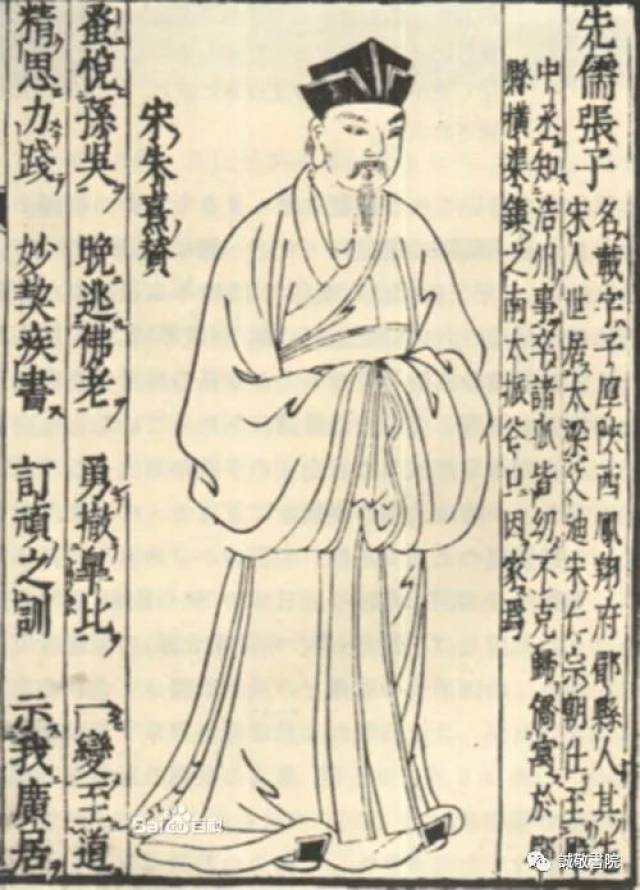 先儒張子
名載字子厚陝西鳳翔府郿縣人其
宋人世居太梁父廸宋仁宗朝仕至
中丞知涪州事卒諸孤皆幼不克歸僑寓於
縣橫渠鎮之南太振谷口因家焉
宋朱熹贊
蚤悅孫吳 晚逃佛老 勇撤皐比 一變至道
精思力踐 妙契疾書 訂頑之訓 示我廣居
Baidu百科
誠敬書院